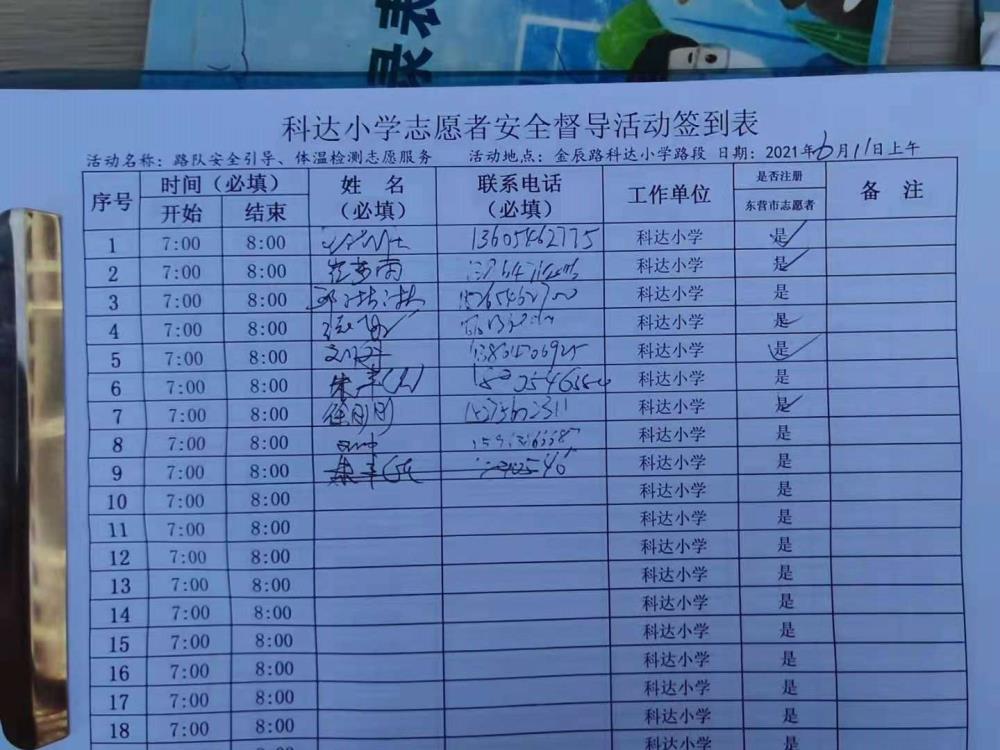 科达小学志愿者安全督导活动签到表
活动名称：路队安全引导、体温检测志愿服务 活动地点：金辰路科达小学路段 日期：2021年6月11日上午
序号 时间（必填） 姓 名（必填） 联系电话（必填） 工作单位 是否注册东营市志愿者 备 注
开始 结束
1 7:00 8:00 13605462775 科达小学 是
2 7:00 8:00 科达小学 是
3 7:00 8:00 科达小学 是
4 7:00 8:00 科达小学 是
5 7:00 8:00 科达小学 是
6 7:00 8:00 科达小学 是
7 7:00 8:00 科达小学 是
8 7:00 8:00 科达小学 是
9 7:00 8:00 科达小学 是
10 7:00 8:00 科达小学 是
11 7:00 8:00 科达小学 是
12 7:00 8:00 科达小学 是
13 7:00 8:00 科达小学 是
14 7:00 8:00 科达小学 是
15 7:00 8:00 科达小学 是
16 7:00 8:00 科达小学 是
17 7:00 8:00 科达小学 是
18 7:00 8:00 科达小学 是
科达小学 是